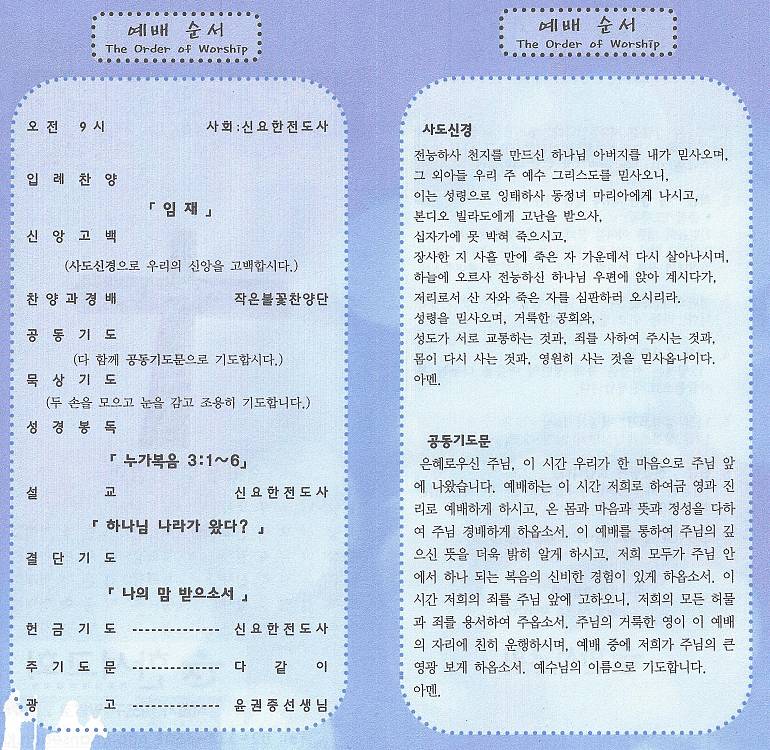 예배 순서
The Order of Worship
오전 9시 사회:신요한전도사
입례찬양
「 임 재 」
신앙고백
(사도신경으로 우리의 신앙을 고백합시다.)
찬양과경배 작은불꽃찬양단
공동기도
(다 함께 공동기도문으로 기도합시다.)
묵상기도
(두 손을 모으고 눈을 감고 조용히 기도합니다.)
성경봉독
「 누가복음 3:1~6」
설 교 신요한전도사
「 하나님 나라가 왔다? 」
결단기도
「 나의 맘 받으소서 」
헌금기도 -------------- 신요한전도사
주기도문 -------------- 다 같 이
광 고 -------------- 윤권중선생님
예배 순서
The Order of Worship
사도신경
전능하사 천지를 만드신 하나님 아버지를 내가 믿사오며,
그 외아들 우리 주 예수 그리스도를 믿사오니,
이는 성령으로 잉태하사 동정녀 마리아에게 나시고,
본디오 빌라도에게 고난을 받으사,
십자가에 못 박혀 죽으시고,
장사한 지 사흘 만에 죽은 자 가운데서 다시 살아나시며,
하늘에 오르사 전능하신 하나님 우편에 앉아 계시다가,
저리로서 산 자와 죽은 자를 심판하러 오시리라.
성령을 믿사오며, 거룩한 공회와,
성도가 서로 교통하는 것과, 죄를 사하여 주시는 것과,
몸이 다시 사는 것과, 영원히 사는 것을 믿사옵나이다.
아멘.
공동기도문
은혜로우신 주님, 이 시간 우리가 한 마음으로 주님 앞
에 나왔습니다. 예배하는 이 시간 저희로 하여금 영과 진
리로 예배하게 하시고, 온 몸과 마음과 뜻과 정성을 다하
여 주님 경배하게 하옵소서. 이 예배를 통하여 주님의 깊
으신 뜻을 더욱 밝히 알게 하시고, 저희 모두가 주님 안
에서 하나 되는 복음의 신비한 경험이 있게 하옵소서. 이
시간 저희의 죄를 주님 앞에 고하오니, 저희의 모든 허물
과 죄를 용서하여 주옵소서. 주님의 거룩한 영이 이 예배
의 자리에 친히 운행하시며, 예배 중에 저희가 주님의 큰
영광 보게 하옵소서. 예수님의 이름으로 기도합니다.
아멘.